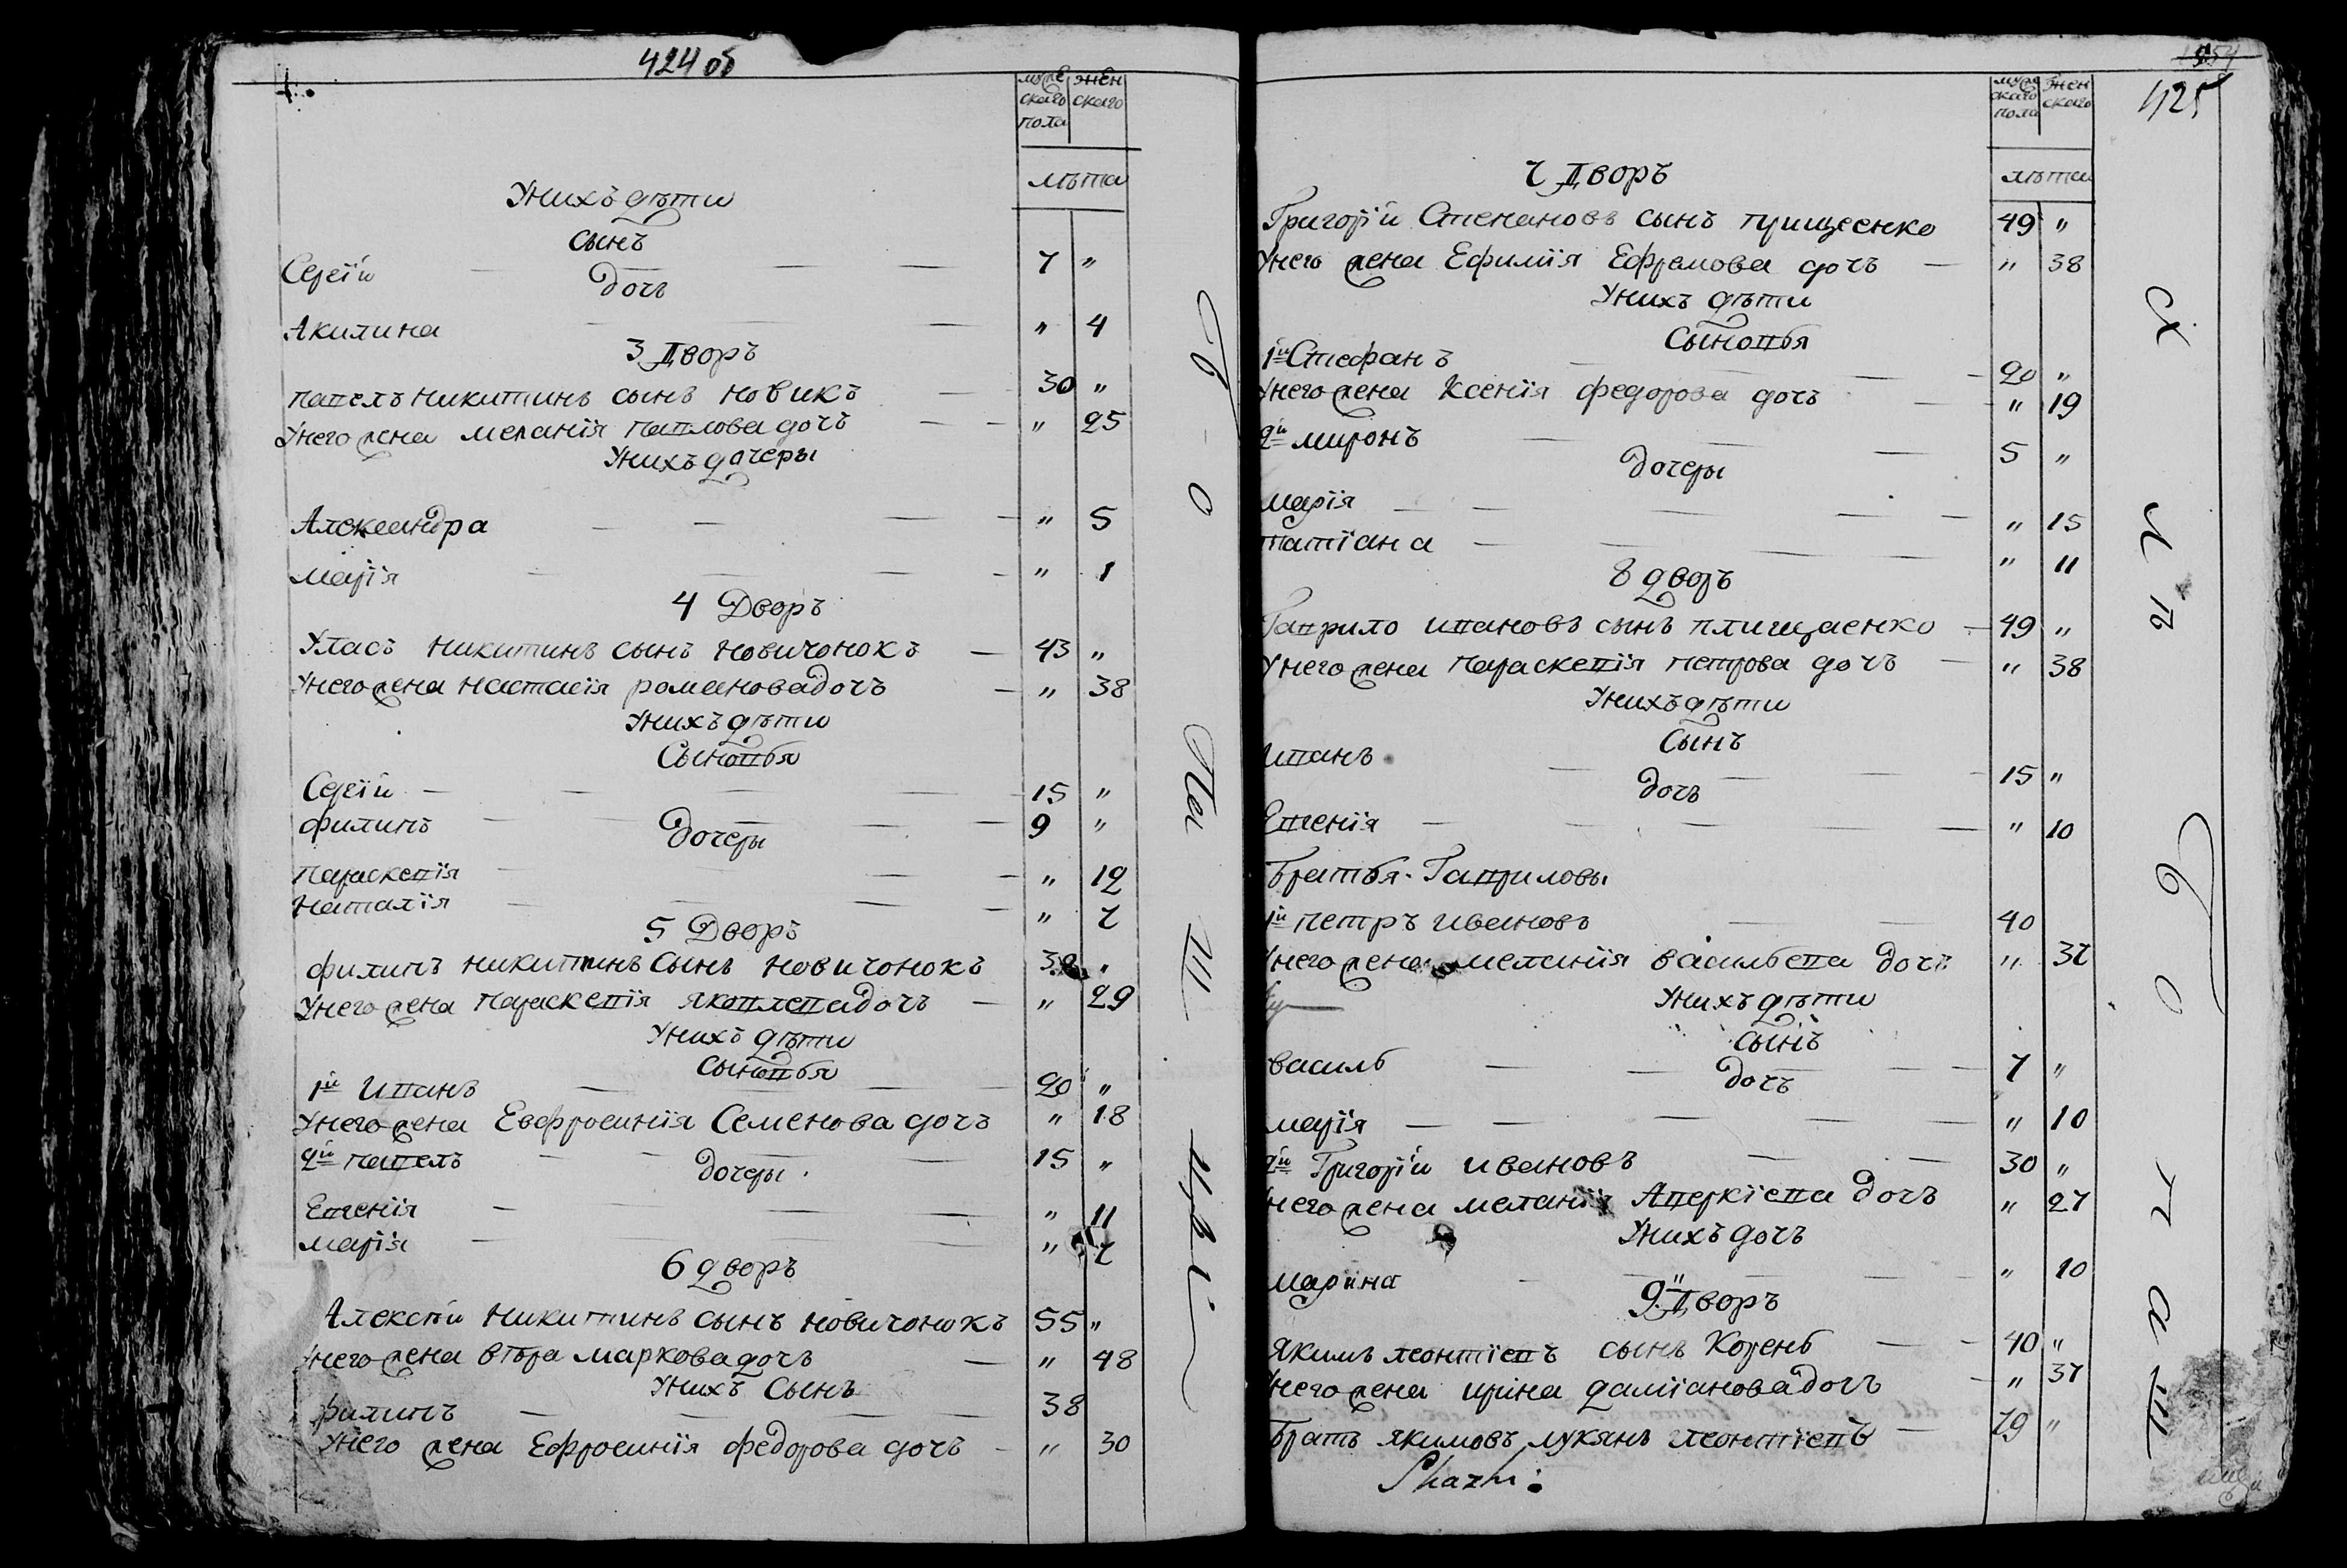 424 об
муже
скаго
пола
жен
скаго
лѣта
У нихъ дѣти
сынъ
Сергій 7 "
дочь
Акилина " 4
3 Дворъ
павелъ никитинъ сынъ новикъ 30 "
У него жена меланія павлова дочь " 25
У нихъ дочеры
Александра " 5
марія " 1
4 Дворъ
Уласъ никитинъ сынъ новичонокъ 43 "
У него жена настасія романова дочь " 38
У нихъ дѣти
Сыновья
Сергій 15 "
филипъ 9 "
дочеры
параскевія " 12
наталія " 7
5 Дворъ
филипъ никитинъ сынъ новичонокъ "
У него жена параскевія яковлева дочь " 29
У нихъ дѣти
сыновья
1й Иванъ 20 "
У него жена Евфросинія Семенова дочь " 18
2й павелъ 15 "
дочеры
Евгенія " 11
марія " 7
6 дворъ
Алексѣй никитинъ сынъ новичонокъ 55 "
У него жена втора маркова дочь " 48
У нихъ Сынъ
филипъ 38
У него жена Ефросинія федорова дочь " 30
425
муже
скаго
пола
жен
скаго
лѣта
7 Дворъ
Григорій Степановъ сынъ прищеенко 49 "
У него жена Ефимія Ефремова дочь " 38
У нихъ дѣти
Сыновья
1й Стефанъ 20 "
У него жена Ксенія федорова дочь " 19
2й миронъ 5 "
дочеры
марія " 15
татіана " 11
8 дворъ
Гаврило ивановъ сынъ плищаенко 49 "
У него жена параскевія петрова дочь " 38
У нихъ дѣти
Сынъ
иванъ 15 "
дочь
Евгенія " 10
Братья Гавриловы
1й петръ ивановъ 40
У него жена меланія васильева дочь " 37
У нихъ дѣти
сынъ
василь 7 "
дочь
марія " 10
2й Григорій ивановъ 30 "
У него жена меланія Аверкіева дочь " 27
У нихъ дочь
марина " 10
9 Дворъ
яким леонтіевъ сынъ Корень 40 "
У него жена ирина даміанова дочь " 37
Братъ якимовъ лукянъ леонтіевъ 29 "